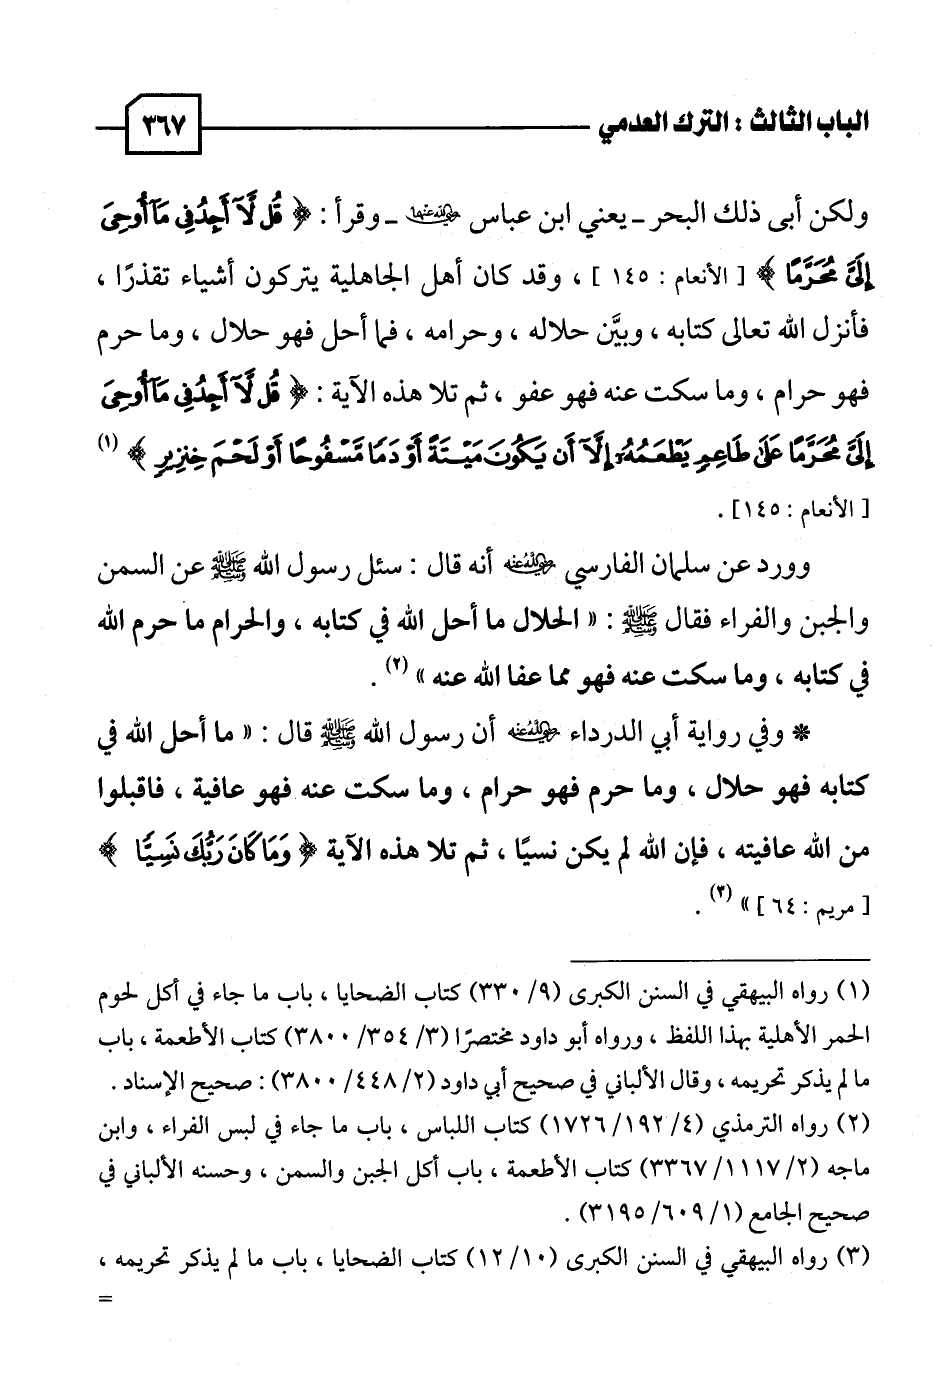 الباب الثالث : الترك العدمي
٣٦٧
ولكن أبى ذلك البحر ـ يعني ابن عباس رضي الله عنهما ـ وقرأ : ﴿ قُل لَّآ أَجِدُ فِي مَآ أُوحِيَ
إِلَيَّ مُحَرَّمًا ﴾ [ الأنعام : ١٤٥ ] ، وقد كان أهل الجاهلية يتركون أشياء تقذرًا ،
فأنزل الله تعالى كتابه ، وبيَّن حلاله ، وحرامه ، فما أحل فهو حلال ، وما حرم
فهو حرام ، وما سكت عنه فهو عفو ، ثم تلا هذه الآية : ﴿ قُل لَّآ أَجِدُ فِي مَآ أُوحِيَ
إِلَيَّ مُحَرَّمًا عَلَىٰ طَاعِمٍ يَطْعَمُهُۥٓ إِلَّآ أَن يَكُونَ مَيْتَةً أَوْ دَمًا مَّسْفُوحًا أَوْ لَحْمَ خِنزِيرٍ ﴾ (١)
[ الأنعام : ١٤٥] .
وورد عن سلمان الفارسي رضي الله عنه أنه قال : سئل رسول الله ﷺ عن السمن
والجبن والفراء فقال ﷺ : « الحلال ما أحل الله في كتابه ، والحرام ما حرم الله
في كتابه ، وما سكت عنه فهو مما عفا الله عنه » (٢) .
* وفي رواية أبي الدرداء رضي الله عنه أن رسول الله ﷺ قال : « ما أحل الله في
كتابه فهو حلال ، وما حرم فهو حرام ، وما سكت عنه فهو عافية ، فاقبلوا
من الله عافيته ، فإن الله لم يكن نسيًا ، ثم تلا هذه الآية ﴿ وَمَا كَانَ رَبُّكَ نَسِيًّا ﴾
[ مريم : ٦٤ ] » (٣) .
(١) رواه البيهقي في السنن الكبرى (٩/ ٣٣٠) كتاب الضحايا ، باب ما جاء في أكل لحوم
الحمر الأهلية بهذا اللفظ ، ورواه أبو داود مختصرًا (٣/ ٣٥٤/ ٣٨٠٠) كتاب الأطعمة ، باب
ما لم يذكر تحريمه ، وقال الألباني في صحيح أبي داود (٢/ ٤٤٨/ ٣٨٠٠) : صحيح الإسناد .
(٢) رواه الترمذي (٤/ ١٩٢/ ١٧٢٦) كتاب اللباس ، باب ما جاء في لبس الفراء ، وابن
ماجه (٢/ ١١١٧/ ٣٣٦٧) كتاب الأطعمة ، باب أكل الجبن والسمن ، وحسنه الألباني في
صحيح الجامع (١/ ٦٠٩/ ٣١٩٥) .
(٣) رواه البيهقي في السنن الكبرى (١٠/ ١٢) كتاب الضحايا ، باب ما لم يذكر تحريمه ،
=